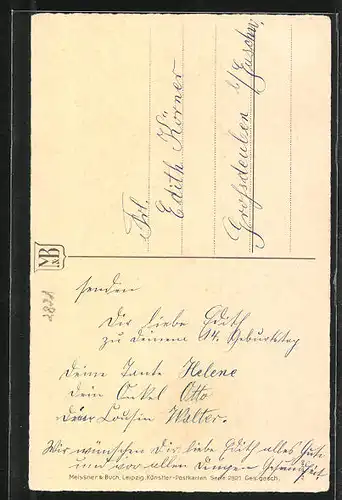 Frl.
Edith Körner
Großdeuben b/Gaschw.
M&B
28721
senden
Dir liebe Edith
zu deinem 14. Geburtstag
Deine Tante Helene
Dein Onkel Otto
Dein Cousin Walter.
Wir wünschen Dir liebe Edith alles Gute
und vor allen Dingen Gesundheit
Meissner & Buch, Leipzig. Künstler-Postkarten Serie 2801. Ges. gesch.